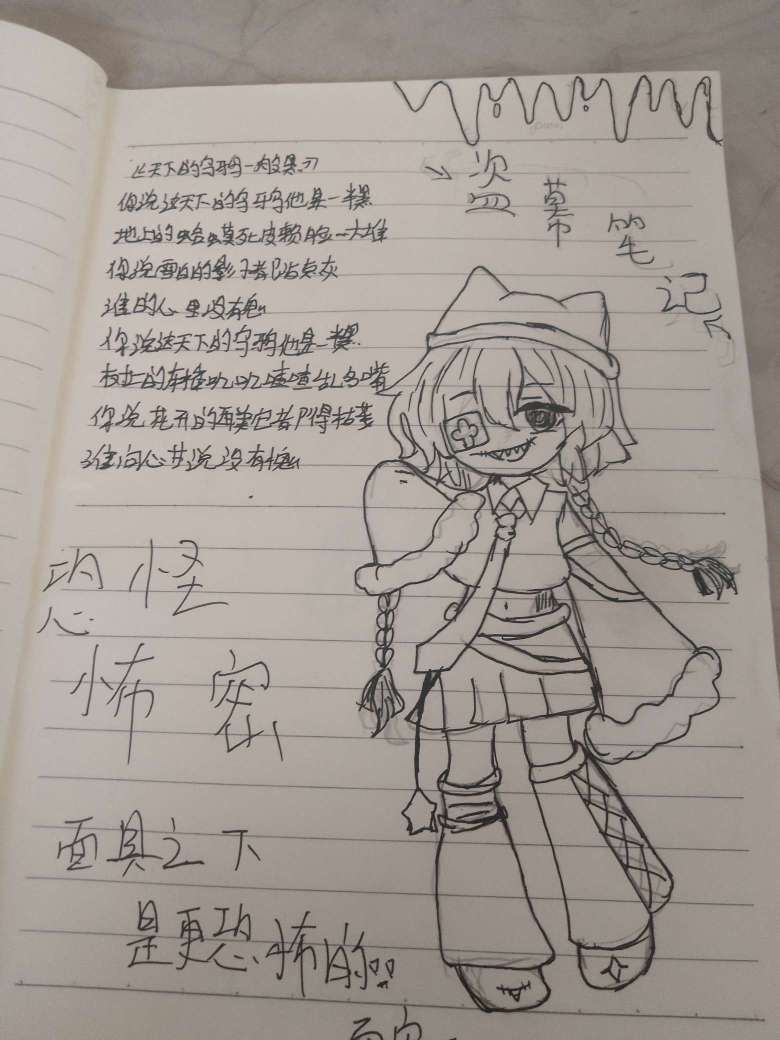 《天下的乌鸦一般黑》
你说这天下的乌鸦他是一般黑
地上的蛤蟆死皮赖脸一大堆
你说雪白的影子都沾点灰
谁的心里没有鬼
你说这天下的乌鸦他是一般黑
枝上的叽叽喳喳乱多嘴
你说花开的再美它都得枯萎
谁问心甘说没有愧
盗幕笔记
恐怖
怪密
面具之下
是更恐怖的